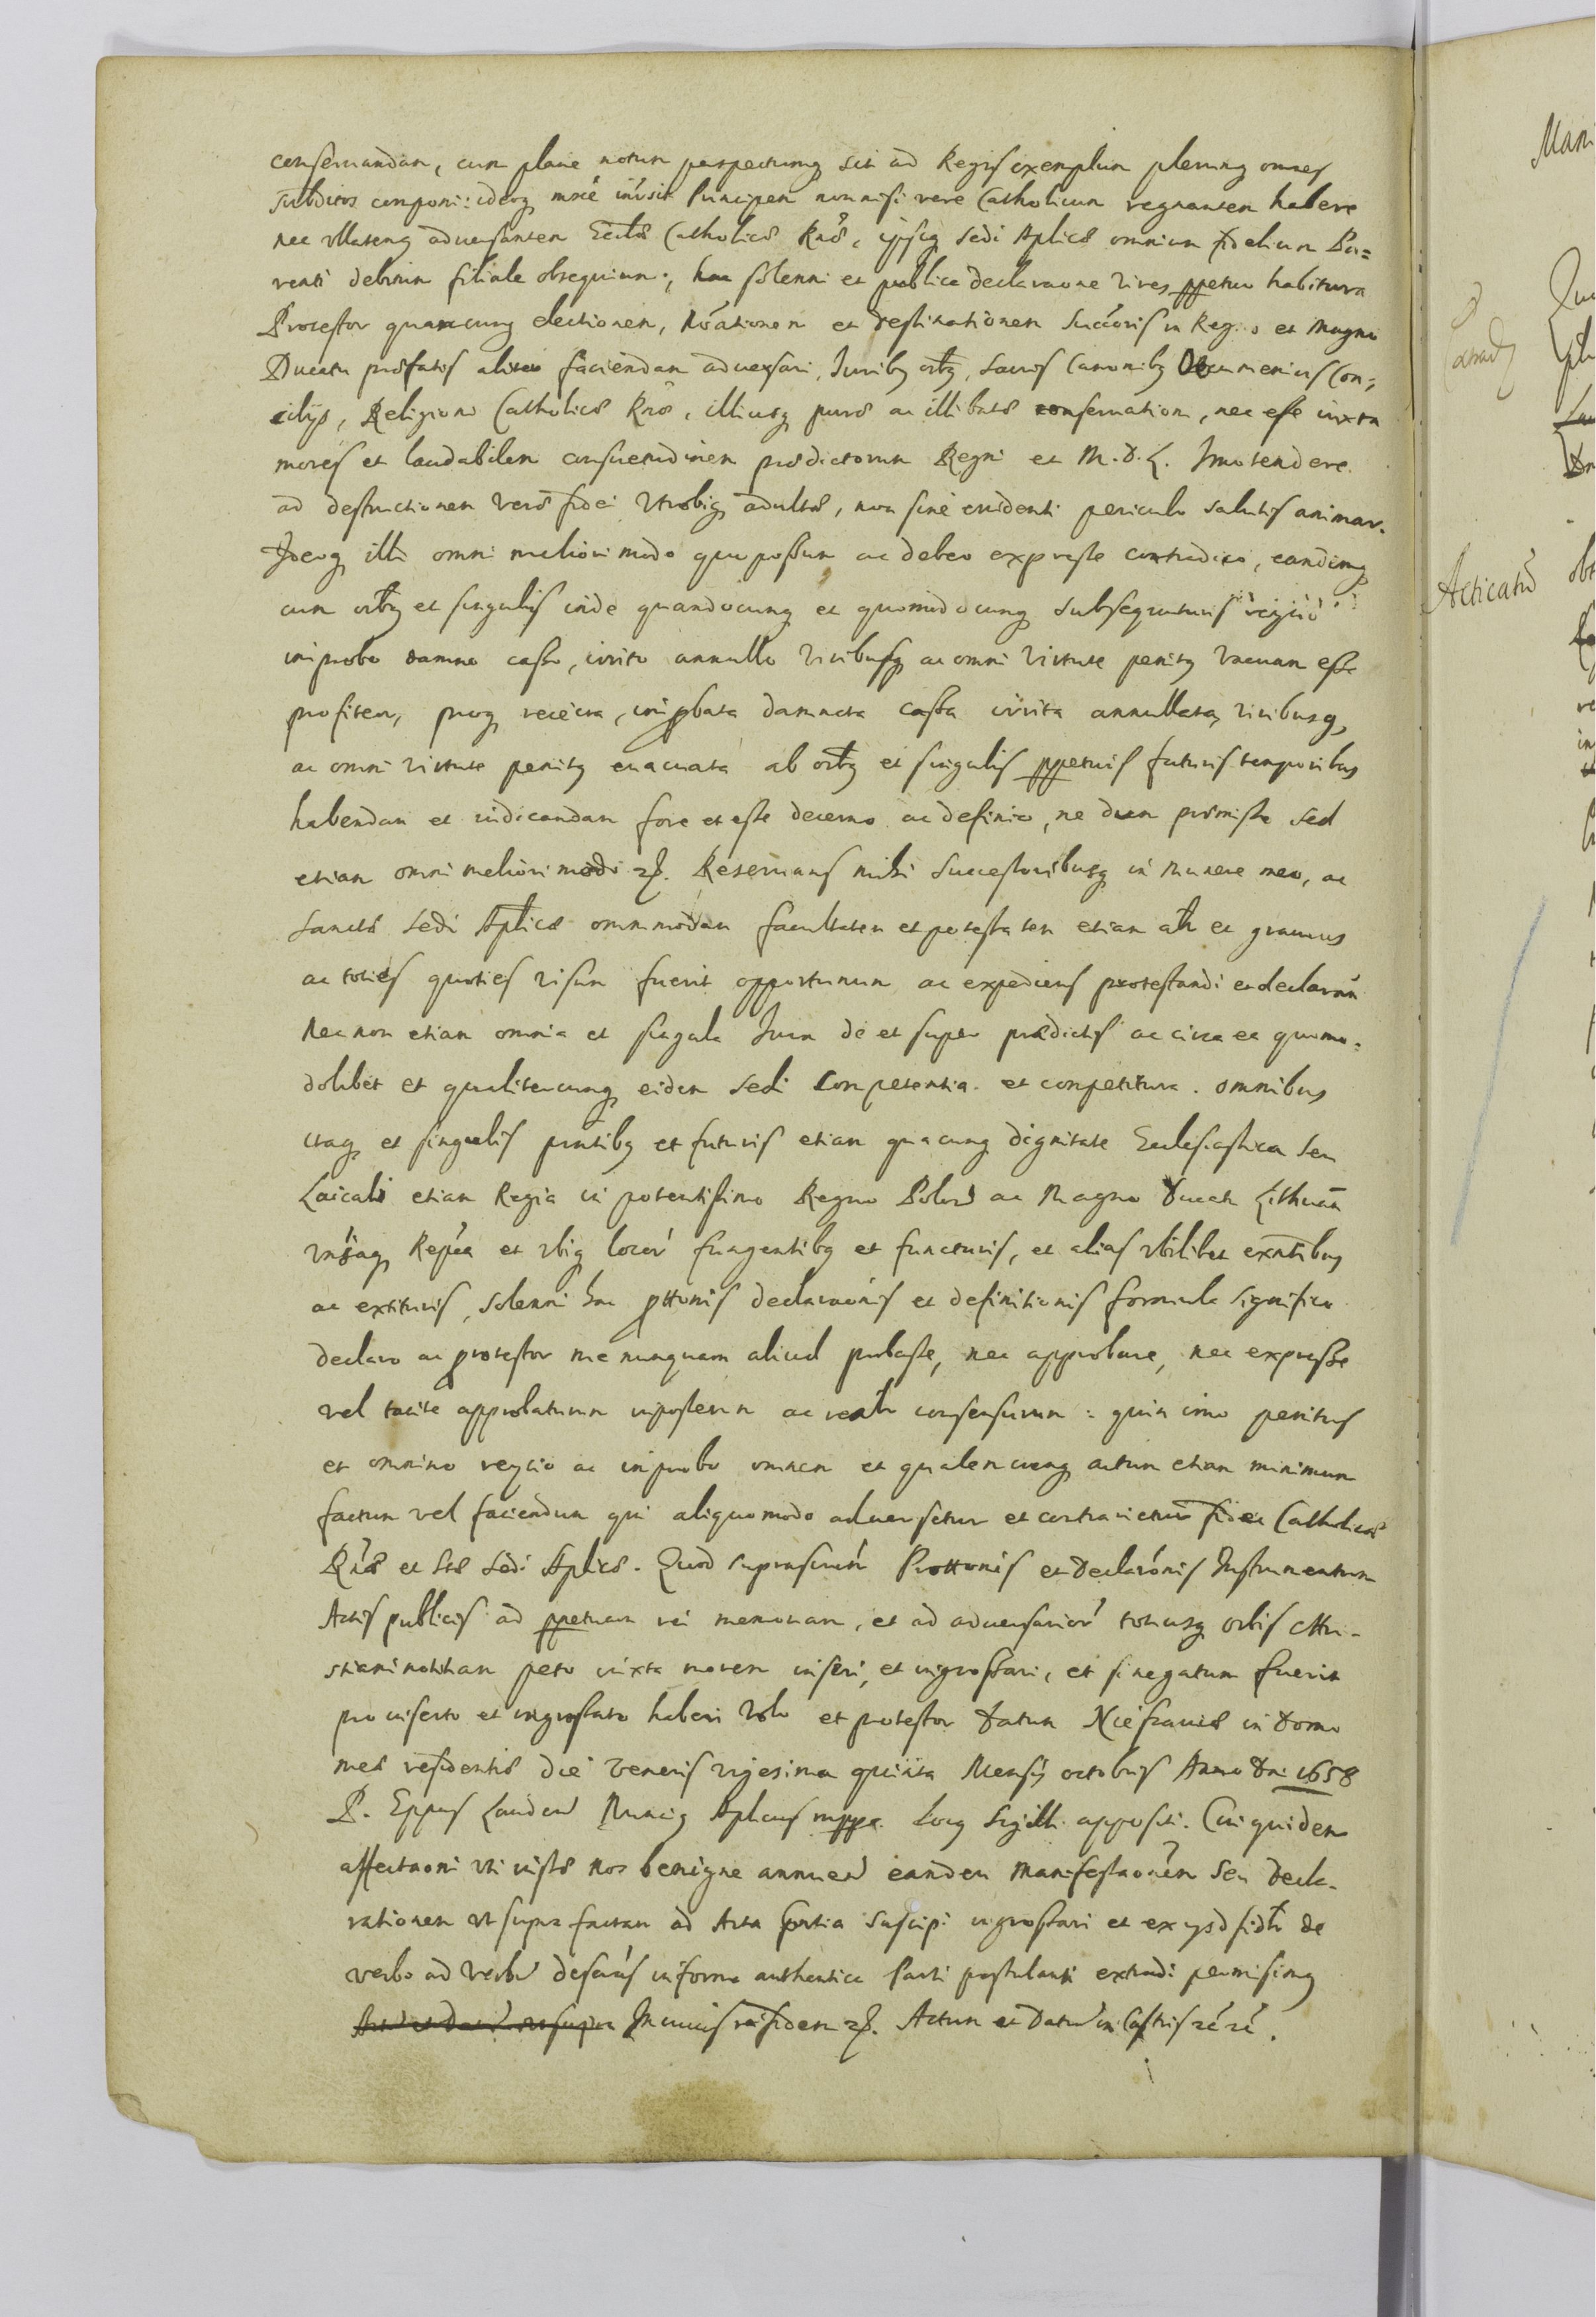 conseruandam, cum plane notum perspectumq sit ad Regis exemplum plerumq omnes
subditos componi: ideoq Principem nonnisi vere Catholicum regnantem habere
nec ullatenq aduersantem Catholicæ Rnæ, ipsiq Sedi Aplicæ omnium fidelium Pa=
renti debitum filiale obsequium; hac solenni et publica declaraone vires ppetuo habitura
Protestor quamcunq electionem, et destinationem Succoris in Reg o et Magno
Ducatu præfatis aliter faciendam aduersari, Juribq oibq, sacris Canonibq Oecumenicis Con=
cilys, Religioni Catholicæ Rnæ, illiusq puræ ac illibatæ conseruationi, nec esse iuxta
mores et laudabilem consuetudinem prædictorum Regni et M. D. L. Imo tendere
ad destructionem veræ fidei utrobiq adultæ, non sine euidenti periculo salutis animar.
Ideoq illi omni meliori modo quo possum ac debeo expresse contradico, eandemq
cum oibq et singulis inde quandocunq et quomodocunq subsequuturis reijcio
improbo damno casso, irrito annullo viribusq ac omni virtute penitq vacuam esse
profiteor, proq reiecta, improbata damnata cassa irrita annullata, viribusq,
ac omni virtute penitq euacuata ab oibq et singulis ppetuis futuris temporibus
habendam et iudicandam fore et esse decerno ac definio, ne dum præmisso sed
etiam omni meliori modo &. Reseruans mihi Successoribusq in munere meo, ac
Sanctæ Sedi Aplicæ omnimodam facultatem et potestatem etiam alr et grauius
ac toties quoties visum fuerit opportunum ac expediens protestandi et declaran
Nec non etiam omnia et singula Jura de et super prædictis ac circa ea quomo=
dolibet et qualitercunq eidem Sedi competentia et competitura. omnibus
itaq et singulis pntibq et futuris etiam quacunq dignitate Ecclesiastica seu
Laicali etiam Regia in potentissimo Regno Polon ac Magno Ducatu Lithuan
et ubiq locor fungentibq et functuris, et alias ubilibet exntibus
ac extituris, solenni hac pttonis declaraonis et definitionis formula significo
declaro ac protestor me nunquam aliud probasse, nec approbare, nec expresse
vel tacite approbaturum inposterum ac consensurum: quin imo penitus
et omnino reijcio ac improbo omnem et qualemcunq actum etiam minimum
factum vel faciendum qui aliquomodo aduersetur et contrarietur fidei Catholicæ
Rnæ et Stæ Sedi Aplicæ. Quod suprascrtu Prottonis et declaronis Instrumentum
Actis publicis ad ppetuam rei memoriam, et ad aduersarior totiusq orbis Chri-
stiani notitiam peto iuxta morem inseri, et ingrossari, et si negatum fuerit
pro inserto et ingrossato haberi volo et protestor Datum in Domo
meæ residentiæ die Veneris vigesima quinta Mensis octobris Anno Dni 1658
P. Eppus Lauden Nunciq Aplicus mppa. Locq Sigilli appositi. Cui quidem
affectaoni uti iustæ nos benigne annuen eandem Manifestaonem seu Decla-
rationem ut supra factam ad Acta sua suscipi ingrossari et ex ysd fidlr de
verbo ad verbu descriis in forma authentica Parti postulanti extradi permisimq
In cuius rei fidem &. Actum et Datu in Castris
Mani
Extrad
Acticatu